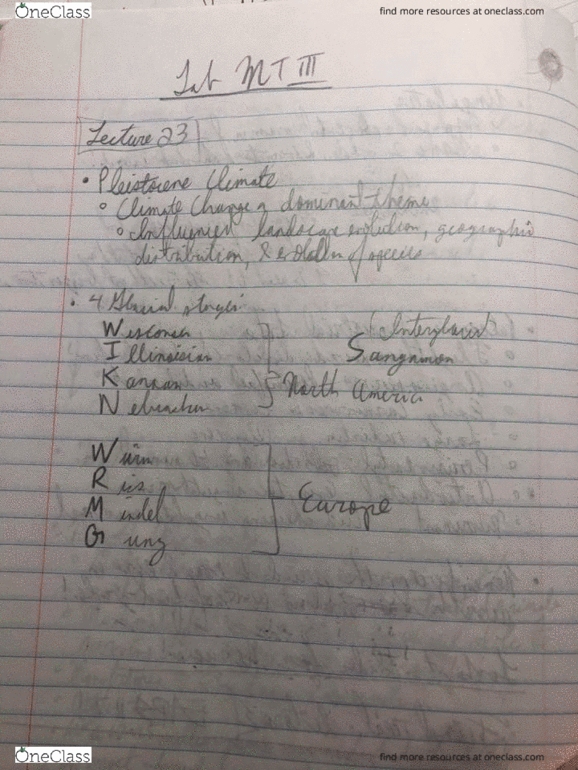 OneClass
find more resources at oneclass.com
Lab MT III
Lecture 23
• Pleistocene Climate
o Climate Change a dominant theme
o Influences landscape evolution, geographic
distribution, & evolution of species
• 4 Glacial stages
Wisconsin (Interglacial)
Illinoisian Sangamon
Kansan North America
Nebraskan
Würm
Riss
Mindel Europe
Gunz
OneClass
find more resources at oneclass.com